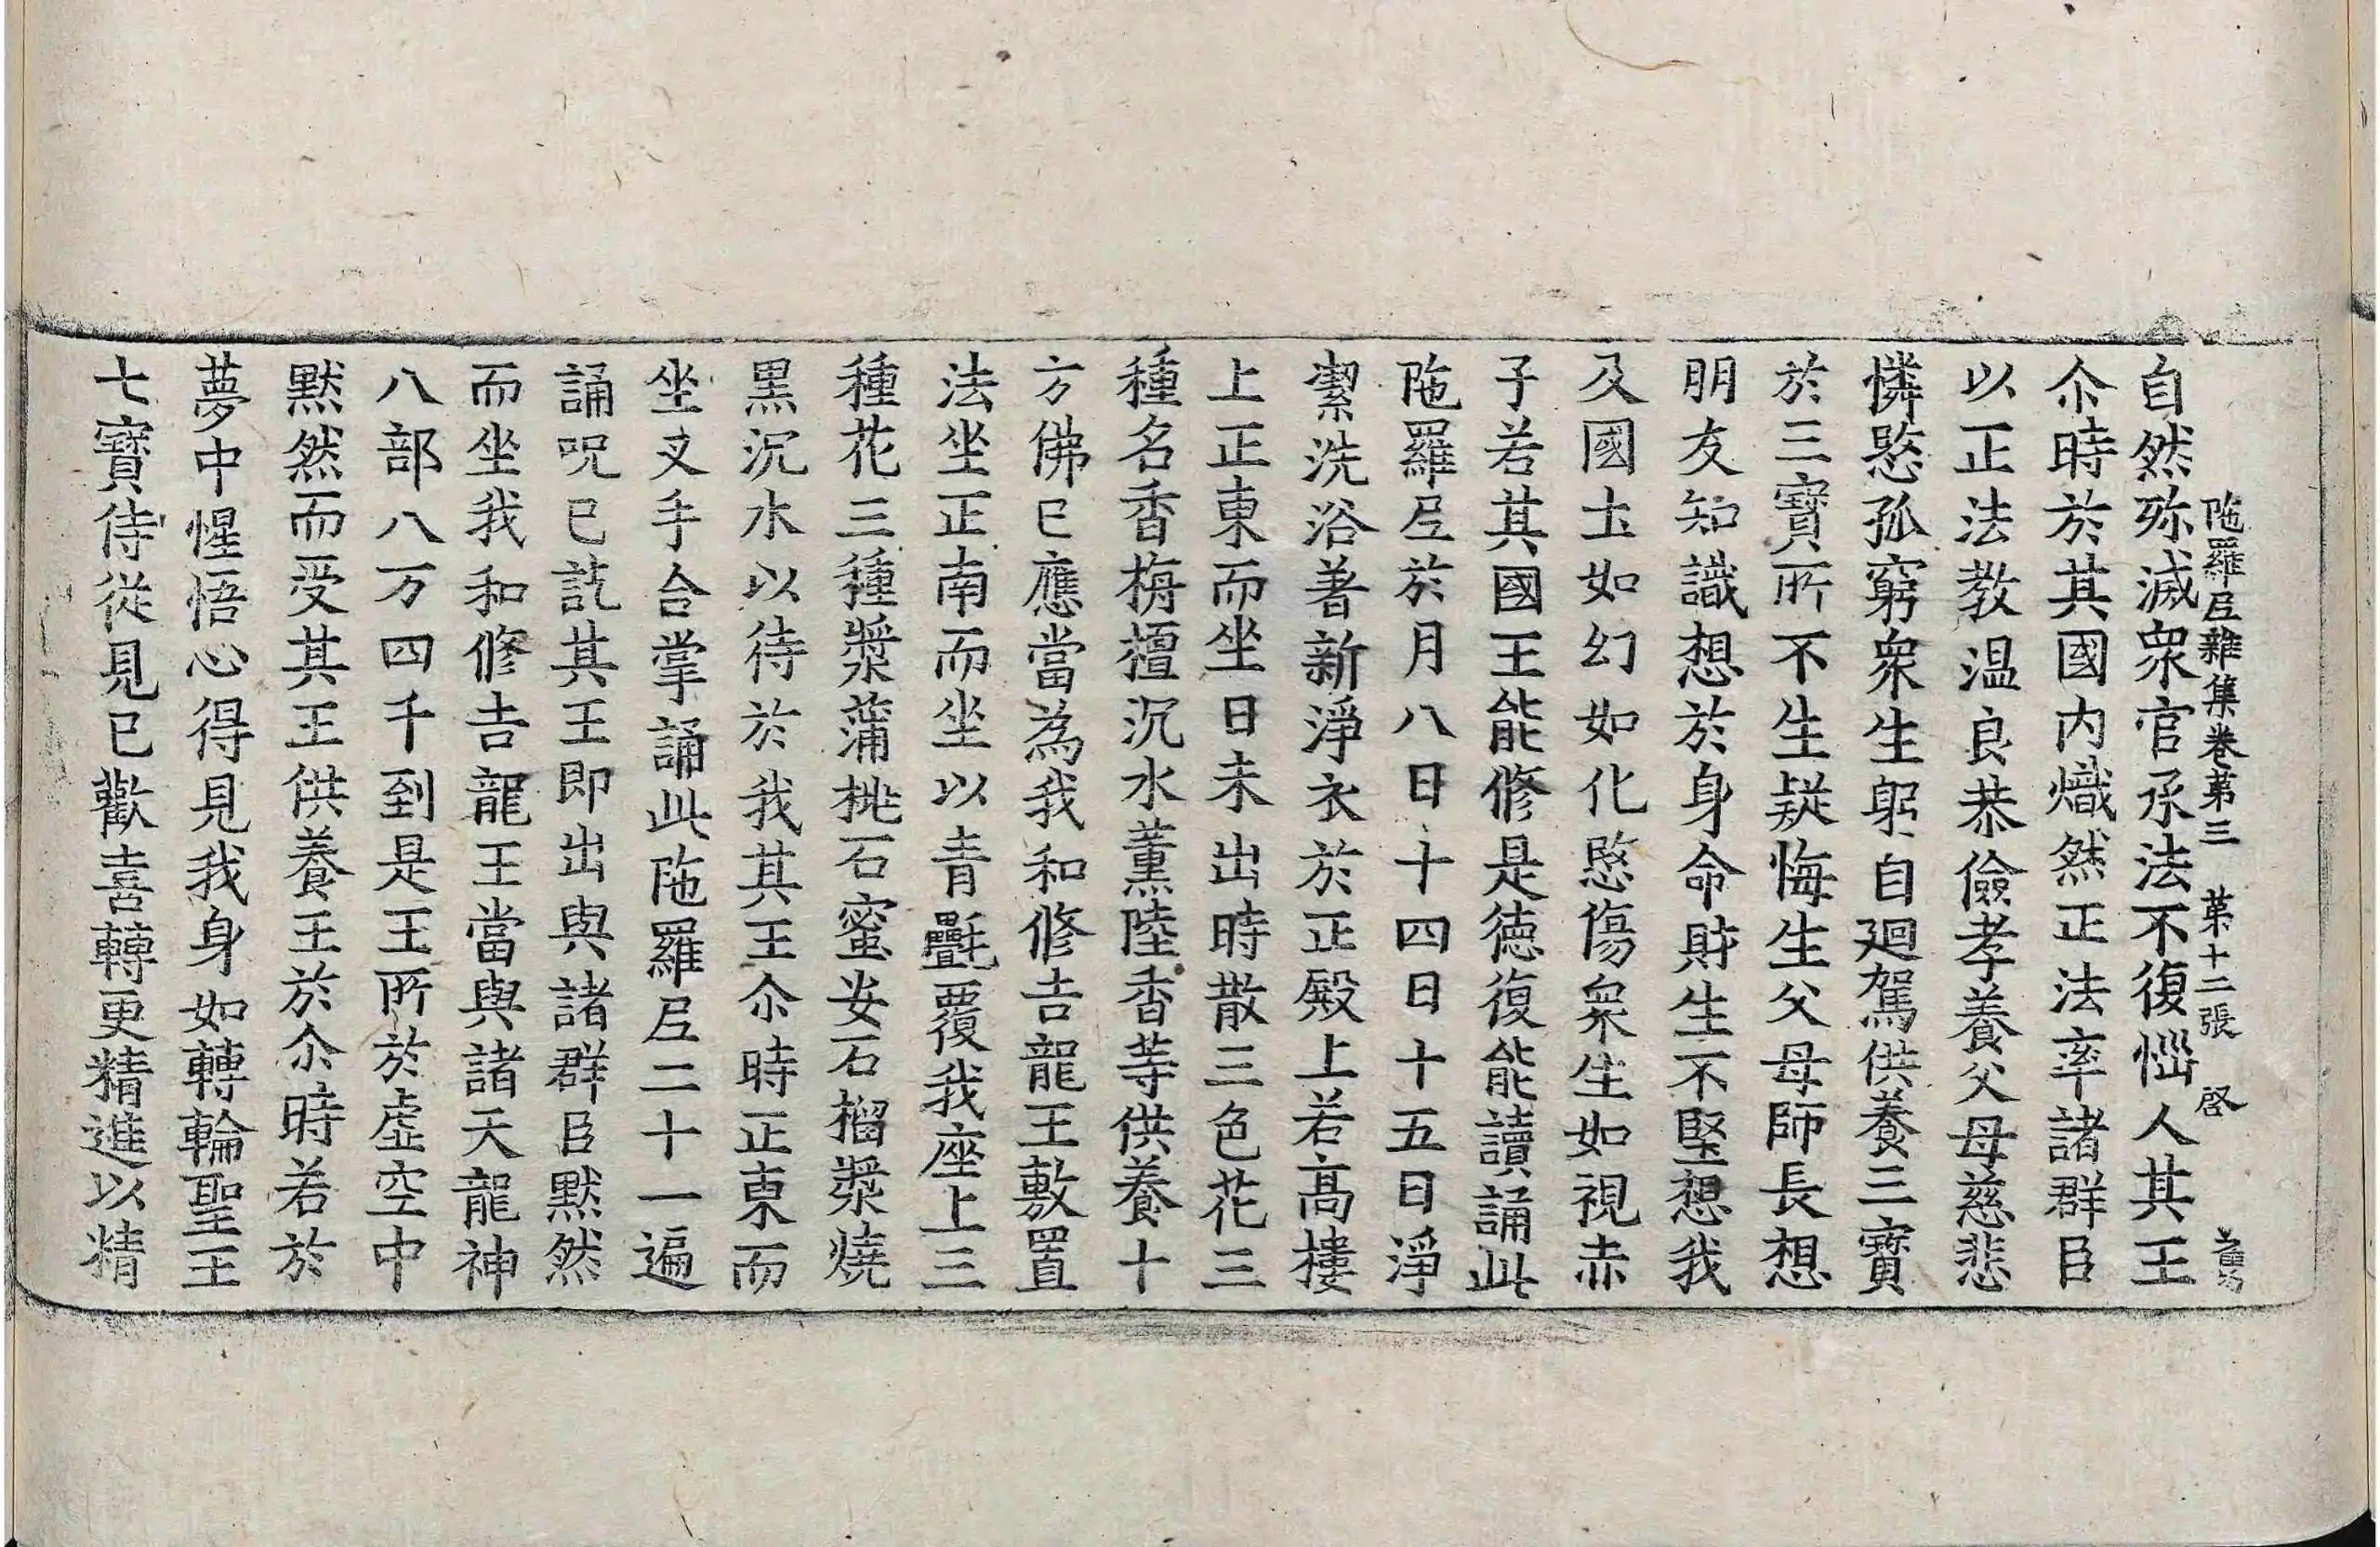 陁羅尼雜集卷第三 第十二張 啓
自然殄滅衆官承法不復惱人其王
尒時於其國内熾然正法率諸群臣
以正法教温良恭儉孝養父母慈悲
憐愍孤窮衆生躬自廻駕供養三寶
於三寶所不生疑悔生父母師長想
朋友知識想於身命財生不堅想我
及國土如幻如化愍傷衆生如視赤
子若其國王能修是德復能讀誦此
陁羅尼於月八日十四日十五日淨
潔洗浴著新淨衣於正殿上若髙樓
上正東而坐日未出時散三色花三
種名香栴檀沉水薫陸香等供養十
方佛已應當為我和修吉龍王敷置
法坐正南而坐以青㲲覆我座上三
種花三種漿蒲桃石蜜安石榴漿燒
黒沉水以待於我其王尒時正東而
坐叉手合掌誦此陁羅尼二十一遍
誦呪已訖其王即出與諸群臣默然
而坐我和修吉龍王當與諸天龍神
八部八万四千到是王所於虚空中
默然而受其王供養王於尒時若於
夢中惺悟心得見我身如轉輪聖王
七寶侍從見已歡喜轉更精進以精